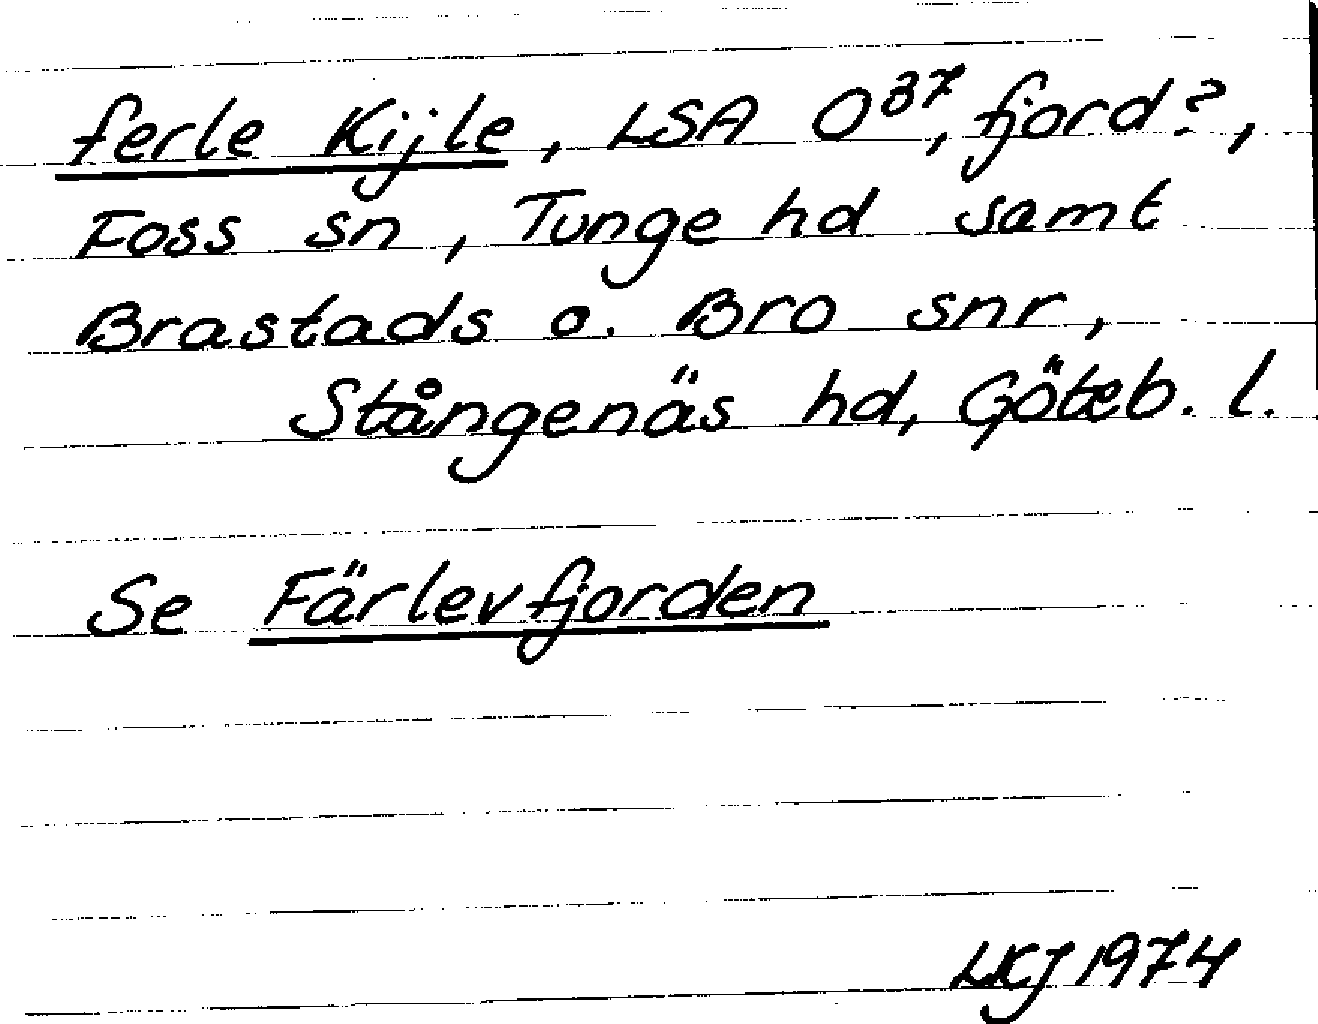 ferle Kijle, LSA O³⁷, fjord?,
Foss sn, Tunge hd samt
Brastads o. Bro snr,
Stångenäs hd, Göteb. l.
Se Färlevfjorden
LKJ 1974